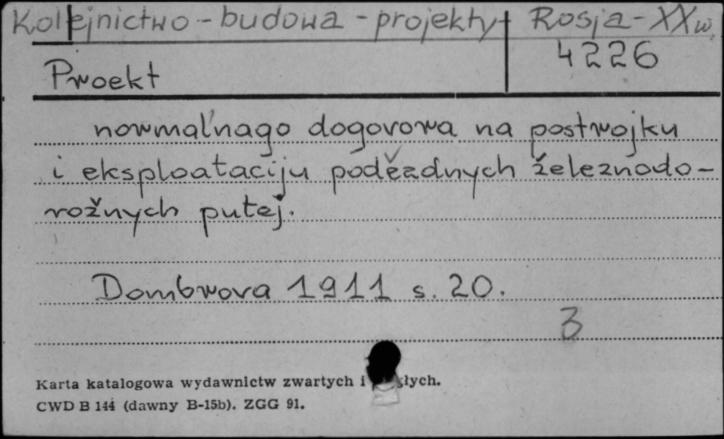 Kolejnictwo - budowa - projekty + Rosja - XX w.
4226
Proekt
normal'nago dogovora na postrojku
i eksploataciju podězdnych železnodo-
rožnych putej.
Dombrova 1911 s. 20.
3
Karta katalogowa wydawnictw zwartych i
CWD B 144 (dawny B-15b). ZGG 91.